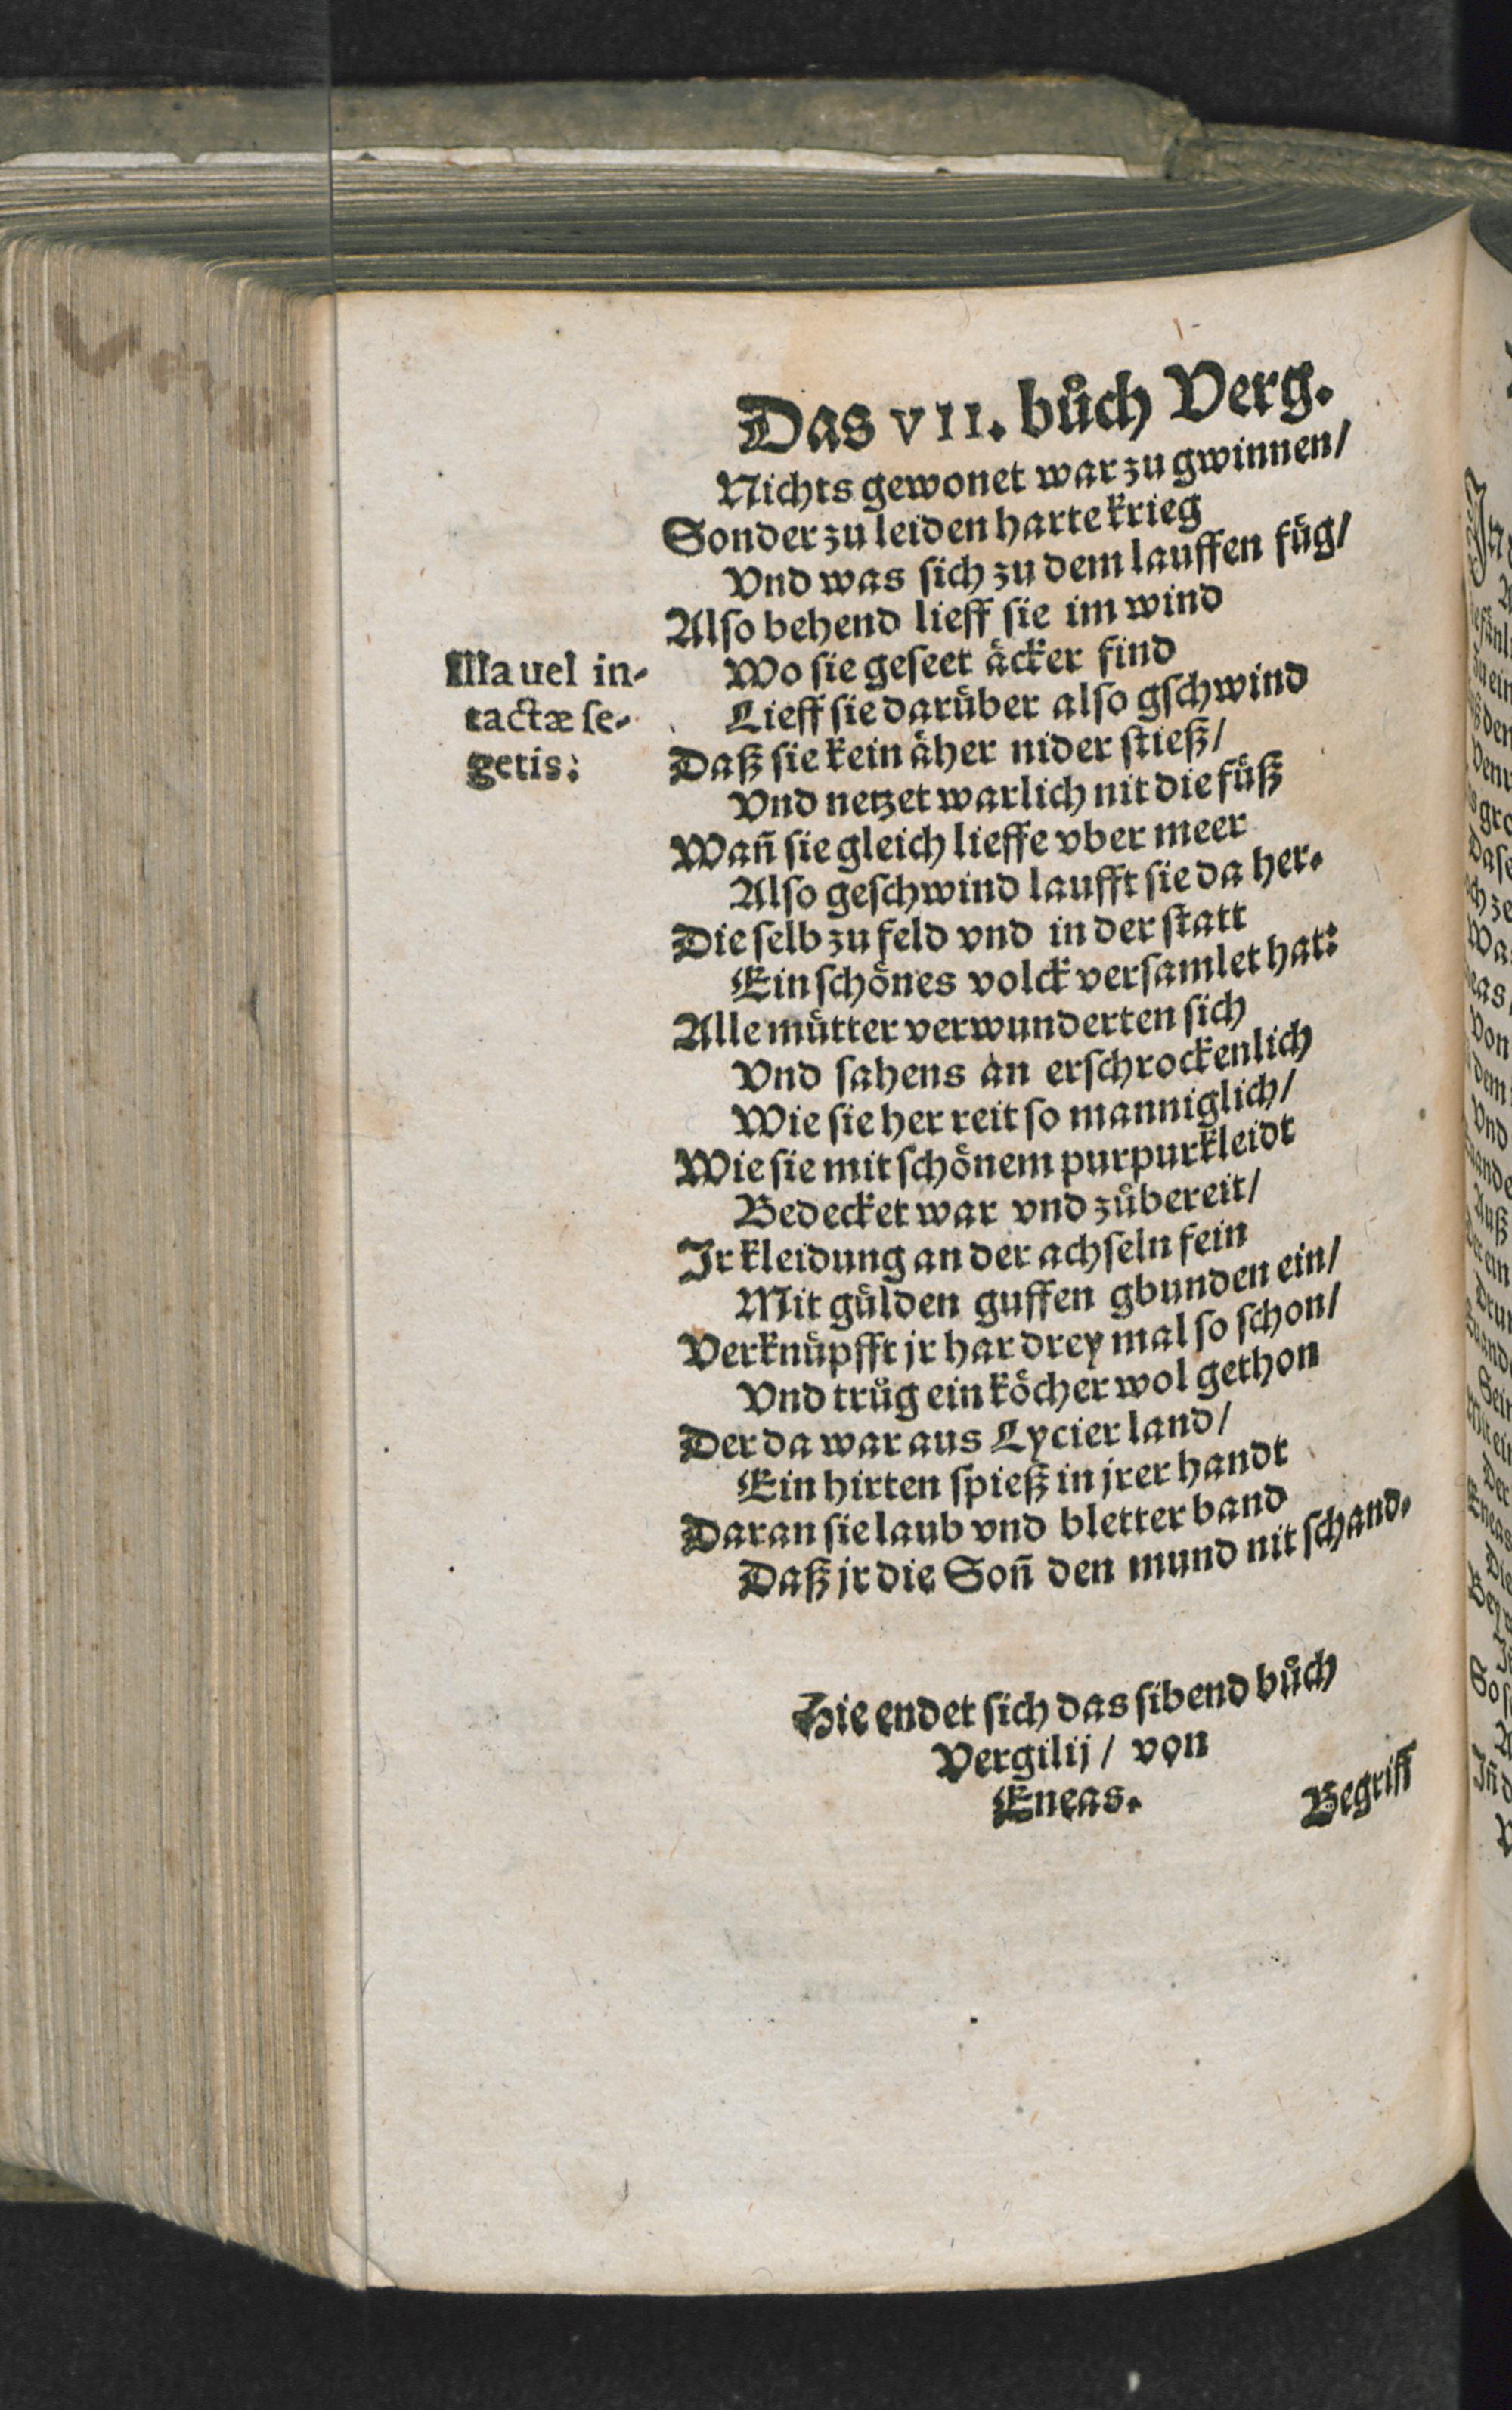 Das VII. bůch Verg.
Nichts gewonet war zu gwinnen/
Sonder zu leiden harte krieg
Vnd was sich zu dem lauffen fuͤg/
Also behend lieff sie im wind
Wo sie geseet aͤcker find
Lieff sie daruͤber also gschwind
Daß sie kein aͤher nider stieß/
Vnd netzet warlich nit die fuͤß
Wañ sie gleich lieffe vber meer
Also geschwind laufft sie da her.
Die selb zu feld vnd in der statt
Ein schoͤnes volck versamlet hat:
Alle muͤtter verwunderten sich
Vnd sahens an erschrockenlich
Wie sie her reit so manniglich/
Wie sie mit schoͤnem purpurkleidt
Bedecket war vnd zůbereit/
Jr kleidung an der achseln fein
Mit guͤlden guffen gbunden ein/
Verknuͤpfft jr har drey mal so schon/
Vnd trůg ein koͤcher wol gethon
Der da war aus Lycier land/
Ein hirten spieß in jrer handt
Daran sie laub vnd bletter band
Daß jr die Soñ den mund nit schand.
Illa uel in-
tactæ se-
getis:
Hie endet sich das sibend bůch
Vergilij / von
Eneas.
Begriff